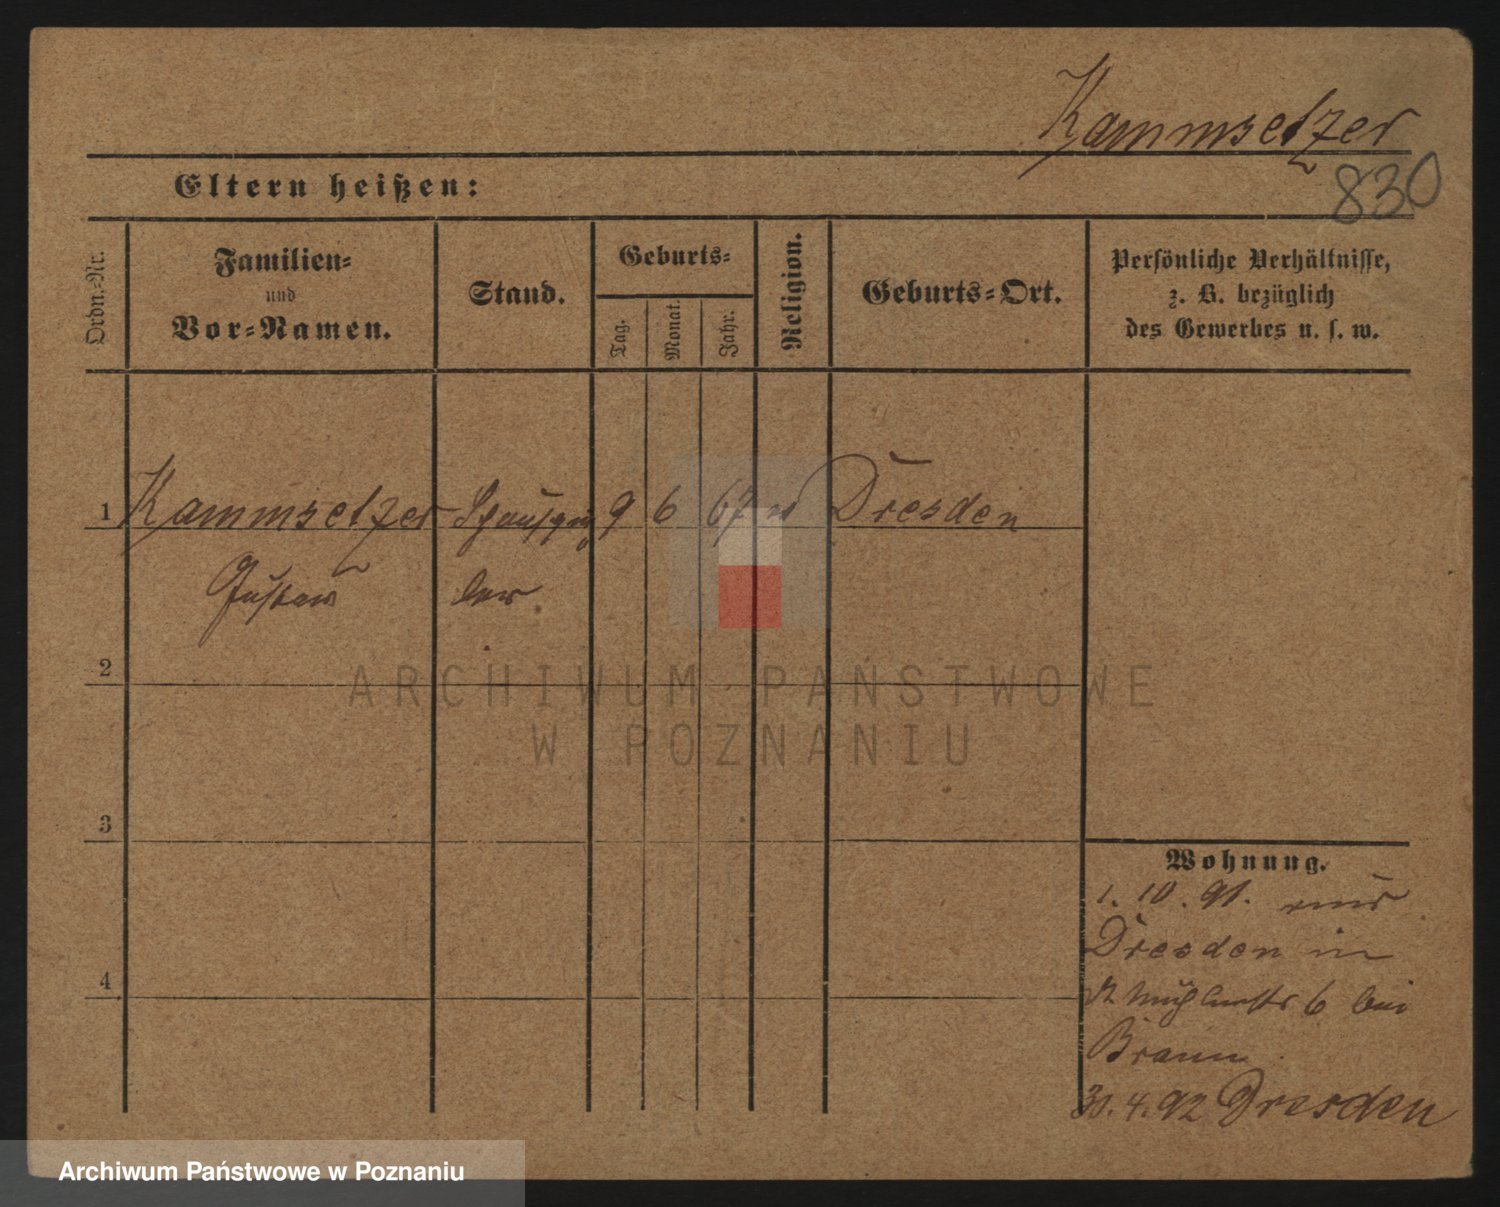 Kammsetzer
830
Eltern heißen:
Ordn.-Nr.
Familien-
und
Vor-Namen.
Stand.
Geburts-
Tag.
Monat.
Jahr.
Religion.
Geburts-Ort.
Persönliche Verhältnisse,
z. B. bezüglich
des Gewerbes u. s. w.
1 Kammsetzer Schauspie 9 6 67 Dresden
Gustav ler
2
ARCHIWUM PAŃSTWOWE
W POZNANIU
3
Wohnung.
1. 10. 91. aus
Dresden in
4
6 bei
Braun
30. 4. 92 Dresden
Archiwum Państwowe w Poznaniu